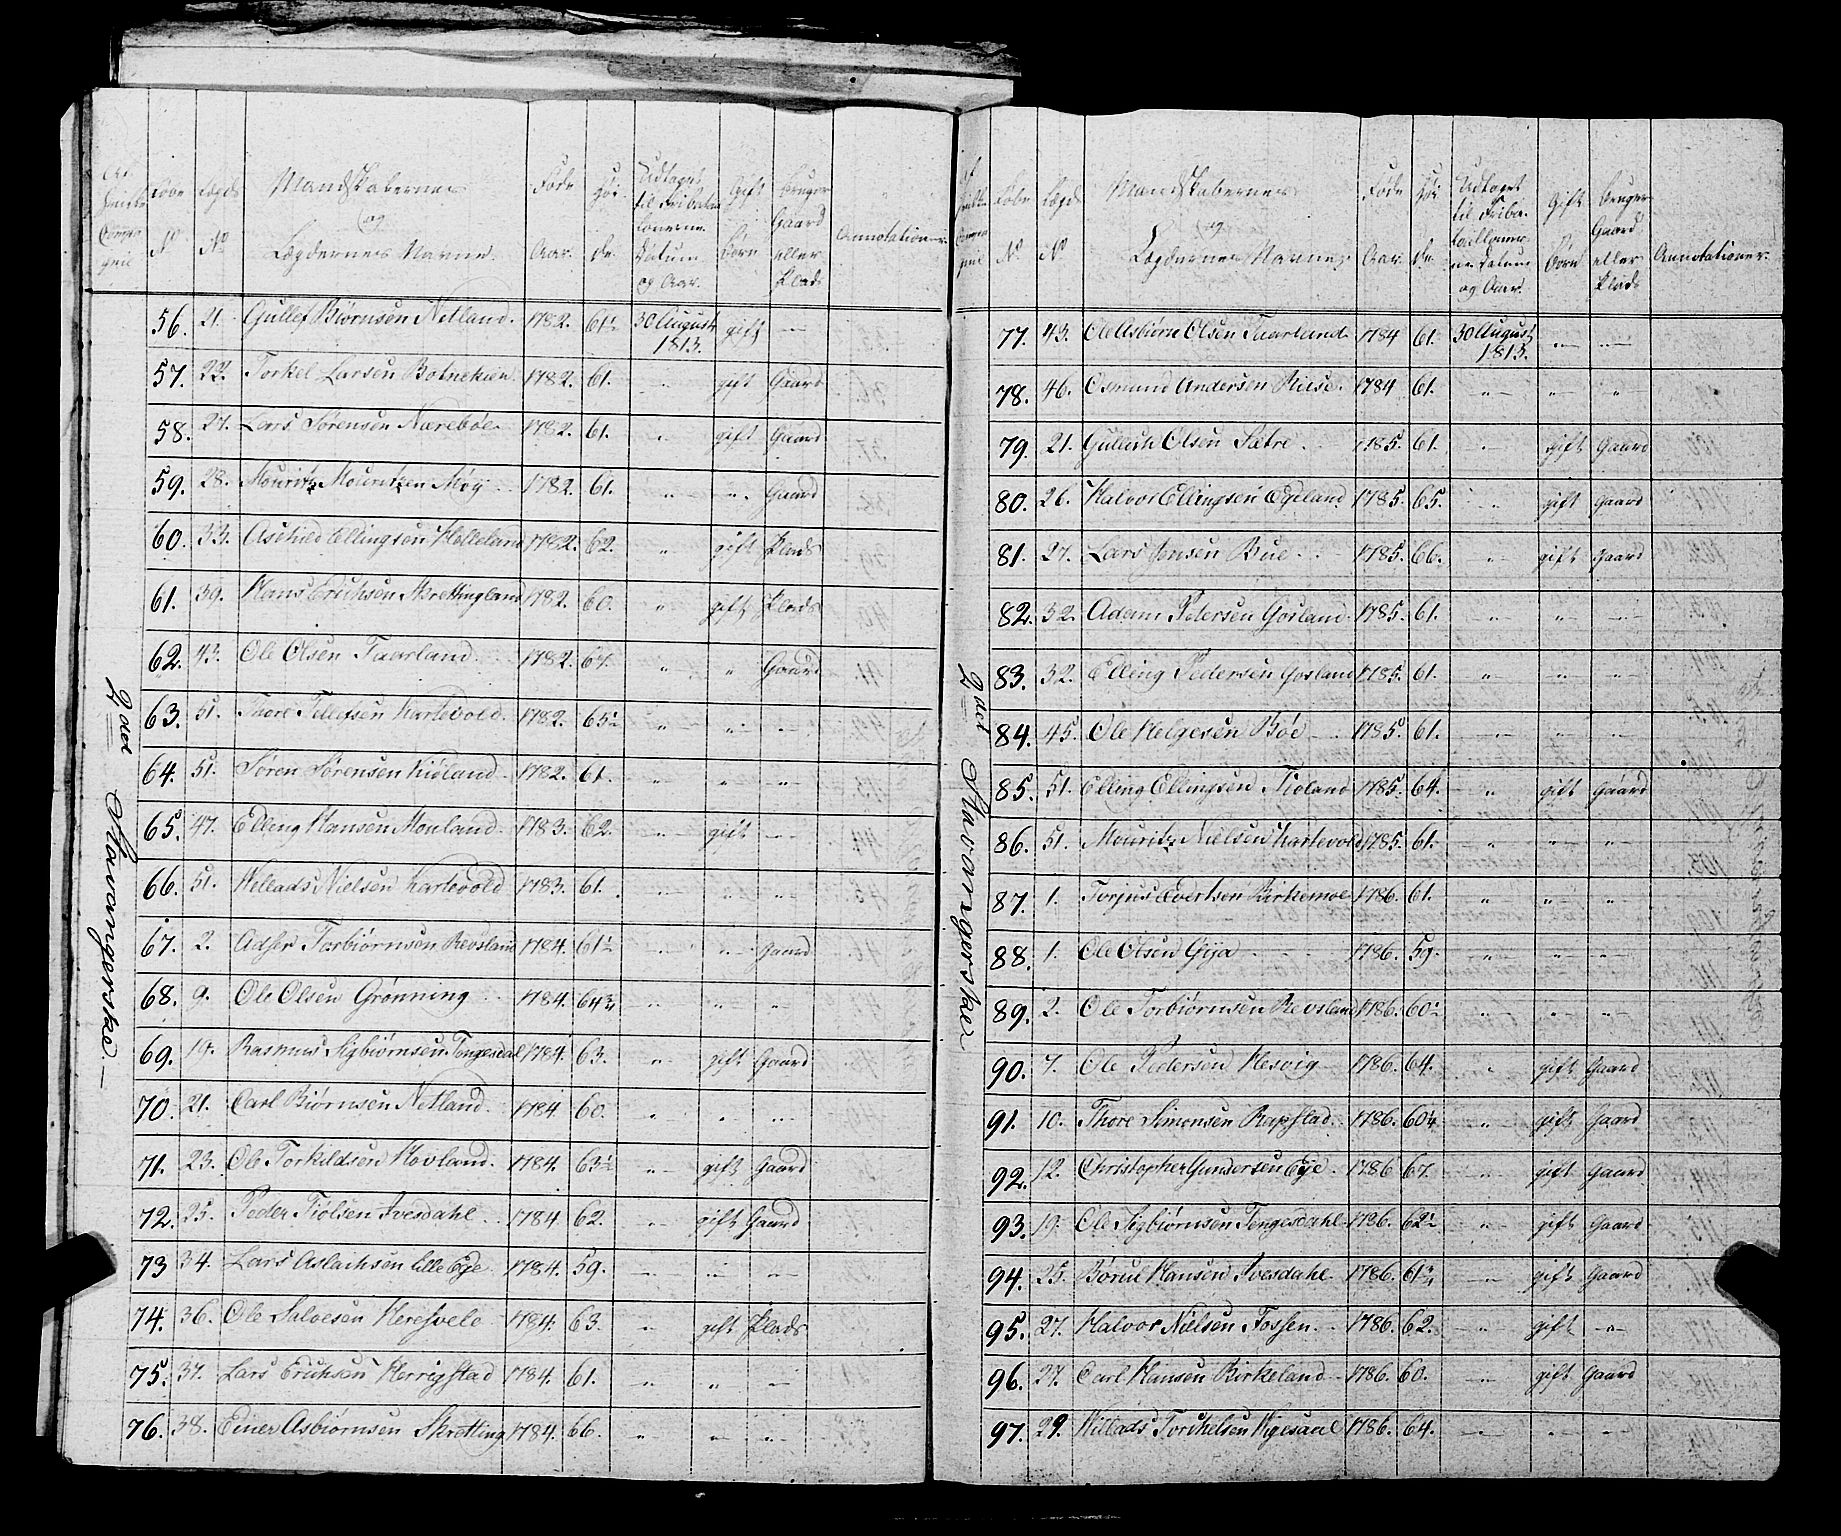 Af hvilke Compagnie | Løbe No | Lægds No | Mandskabernes og Lægdernes Navne. | Føde Aar. | Høide. | Udtaget til Fribataillonerne Datum og Aar. | Gift Børn | Bruger Gaard eller Plads | Annotationer
2det Stavangerske
56. 21. Gullef Biørnsen Netland. 1782. 61½ 30 August 1813. gift —"—
57. 22. Torkel Larsen Botnekien. 1782. 61. " gift Gaard
58. 27. Lars Sørensen Nærebøe 1782. 61. " gift Gaard.
59. 28. Mouritz Mouritzen Møgj 1782. 61. " " Gaard
60. 33. Aschild Ellingsen Helleland 1782. 62. " gift Plads
61. 39. Hans Erichsen Skrettingland 1782. 60. " gift Plads
62. 43. Ole Olsen Taarland 1782. 67. " " Gaard
63. 51. Thore Tellefsen Kartevold. 1782. 65½ " " "
64. 51. Søren Sørensen Kioland 1782. 61. " " "
65. 47. Elling Hansen Houland. 1783. 62. " gift "
66. 51. Hellads Nielsen Kartevold 1783. 61. " " "
67. 2. Adser Torbiørnsen Revsland 1784. 61½ " " Gaard
68. 9. Ole Olsen Grønning 1784. 64¾ " " "
69. 19. Rasmus Sigbiørnsen Tengesdal 1784. 63. " gift Gaard
70. 21. Carl Biørnsen Netland. 1784 60. " " "
71. 23. Ole Torkildsen Hovland. 1784. 63½ " gift Gaard
72. 25. Peder Tiølsen Ivesdahl 1784 62. " gift Gaard
73 34. Lars Aslachsen Lille Eye 1784. 59. " " "
74. 36. Ole Salvesen Heresvele 1784. 63. " gift Plads
75. 37. Lars Erichsen Herrigstad 1784. 61. " " "
76. 38. Einer Asbiørnsen Skretting 1784. 66. " " "
Af hvilke Compagnie | Løbe No. | Lægds No | Mandskabernes og Lægdernes Navne | Føde Aar. | Høide | Udtaget til Fribataillonerne Datum og Aar. | Gift Børn | Bruger Gaard eller Plads | Annotationer.
2det Stavangerske
77. 43. Ole Asbiørn Olsen Taarland 1784 61. 30 August 1813. " "
78. 46. Osmund Andersen Riise. 1784 61. " " "
79. 21. Gullich Olsen Sætre. 1785. 61. " gift Gaard
80. 26. Halvor Ellingsen Egeland. 1785. 65. " gift Gaard
81. 27. Lars Jensen Bue. 1785. 66. " gift Gaard
82. 32. Adam Pedersen Gosland 1785. 61. " " "
83. 32. Elling Pedersen Gosland 1785. 61. " " "
84. 45. Ole Helgesen Bøe 1785. 61. " " "
85. 51. Elling Ellingsen Tioland 1785. 64. " gift Gaard
86. 51. Mouritz Nielsen Kartevold 1785. 61. " " "
87. 1. Torjus Evertsen Birkemoe 1786. 61. " " "
88. 1. Ole Olsen Gya 1786. 59. " " "
89. 2. Ole Torbiørnsen Revsland 1786. 60½ " " "
90. 7. Ole Pedersen Hesvig 1786. 64. " gift Gaard
91. 10. Thore Simonsen Rapstad. 1786. 60¼ " gift Gaard
92. 12. Christopher Gundersen Eye. 1786 67. " gift Gaard
93. 19. Ole Sigbiørnsen Tengesdahl. 1786. 62½ " gift Gaard
94. 25. Børue Hansen Ivesdahl. 1786. 61¾ " gift Gaard
95. 27. Halvor Nielsen Fossen. 1786. 62. " gift "
96. 27. Carl Hansen Birkeland 1786. 60. " gift Gaard
97. 29. Willads Torchelsen Higesaul 1786. 64. " " "